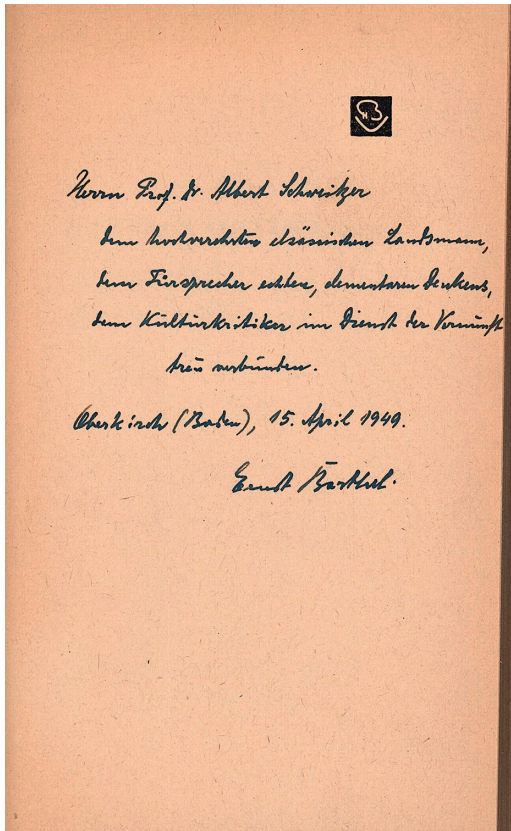 Herrn Prof. Dr. Albert Schweitzer
dem hochverehrten elsässischen Landsmann,
dem Fürsprecher echten, elementaren Denkens,
dem Kulturkritiker im Dienst der Vernunft
treu verbunden.
Oberkirch (Baden), 15. April 1949.
Ernst Barthel.